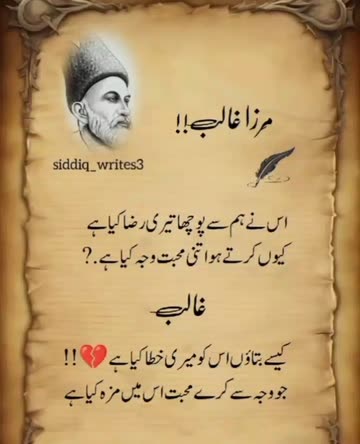 مرزا غالب!!
siddiq_writes3
اس نے ہم سے پوچھا تیری رضا کیا ہے
کیوں کرتے ہو اتنی محبت وجہ کیا ہے.?
غالب
کیسے بتاؤں اس کو میری خطا کیا ہے 💔!!
جو وجہ سے کرے محبت اس میں مزہ کیا ہے